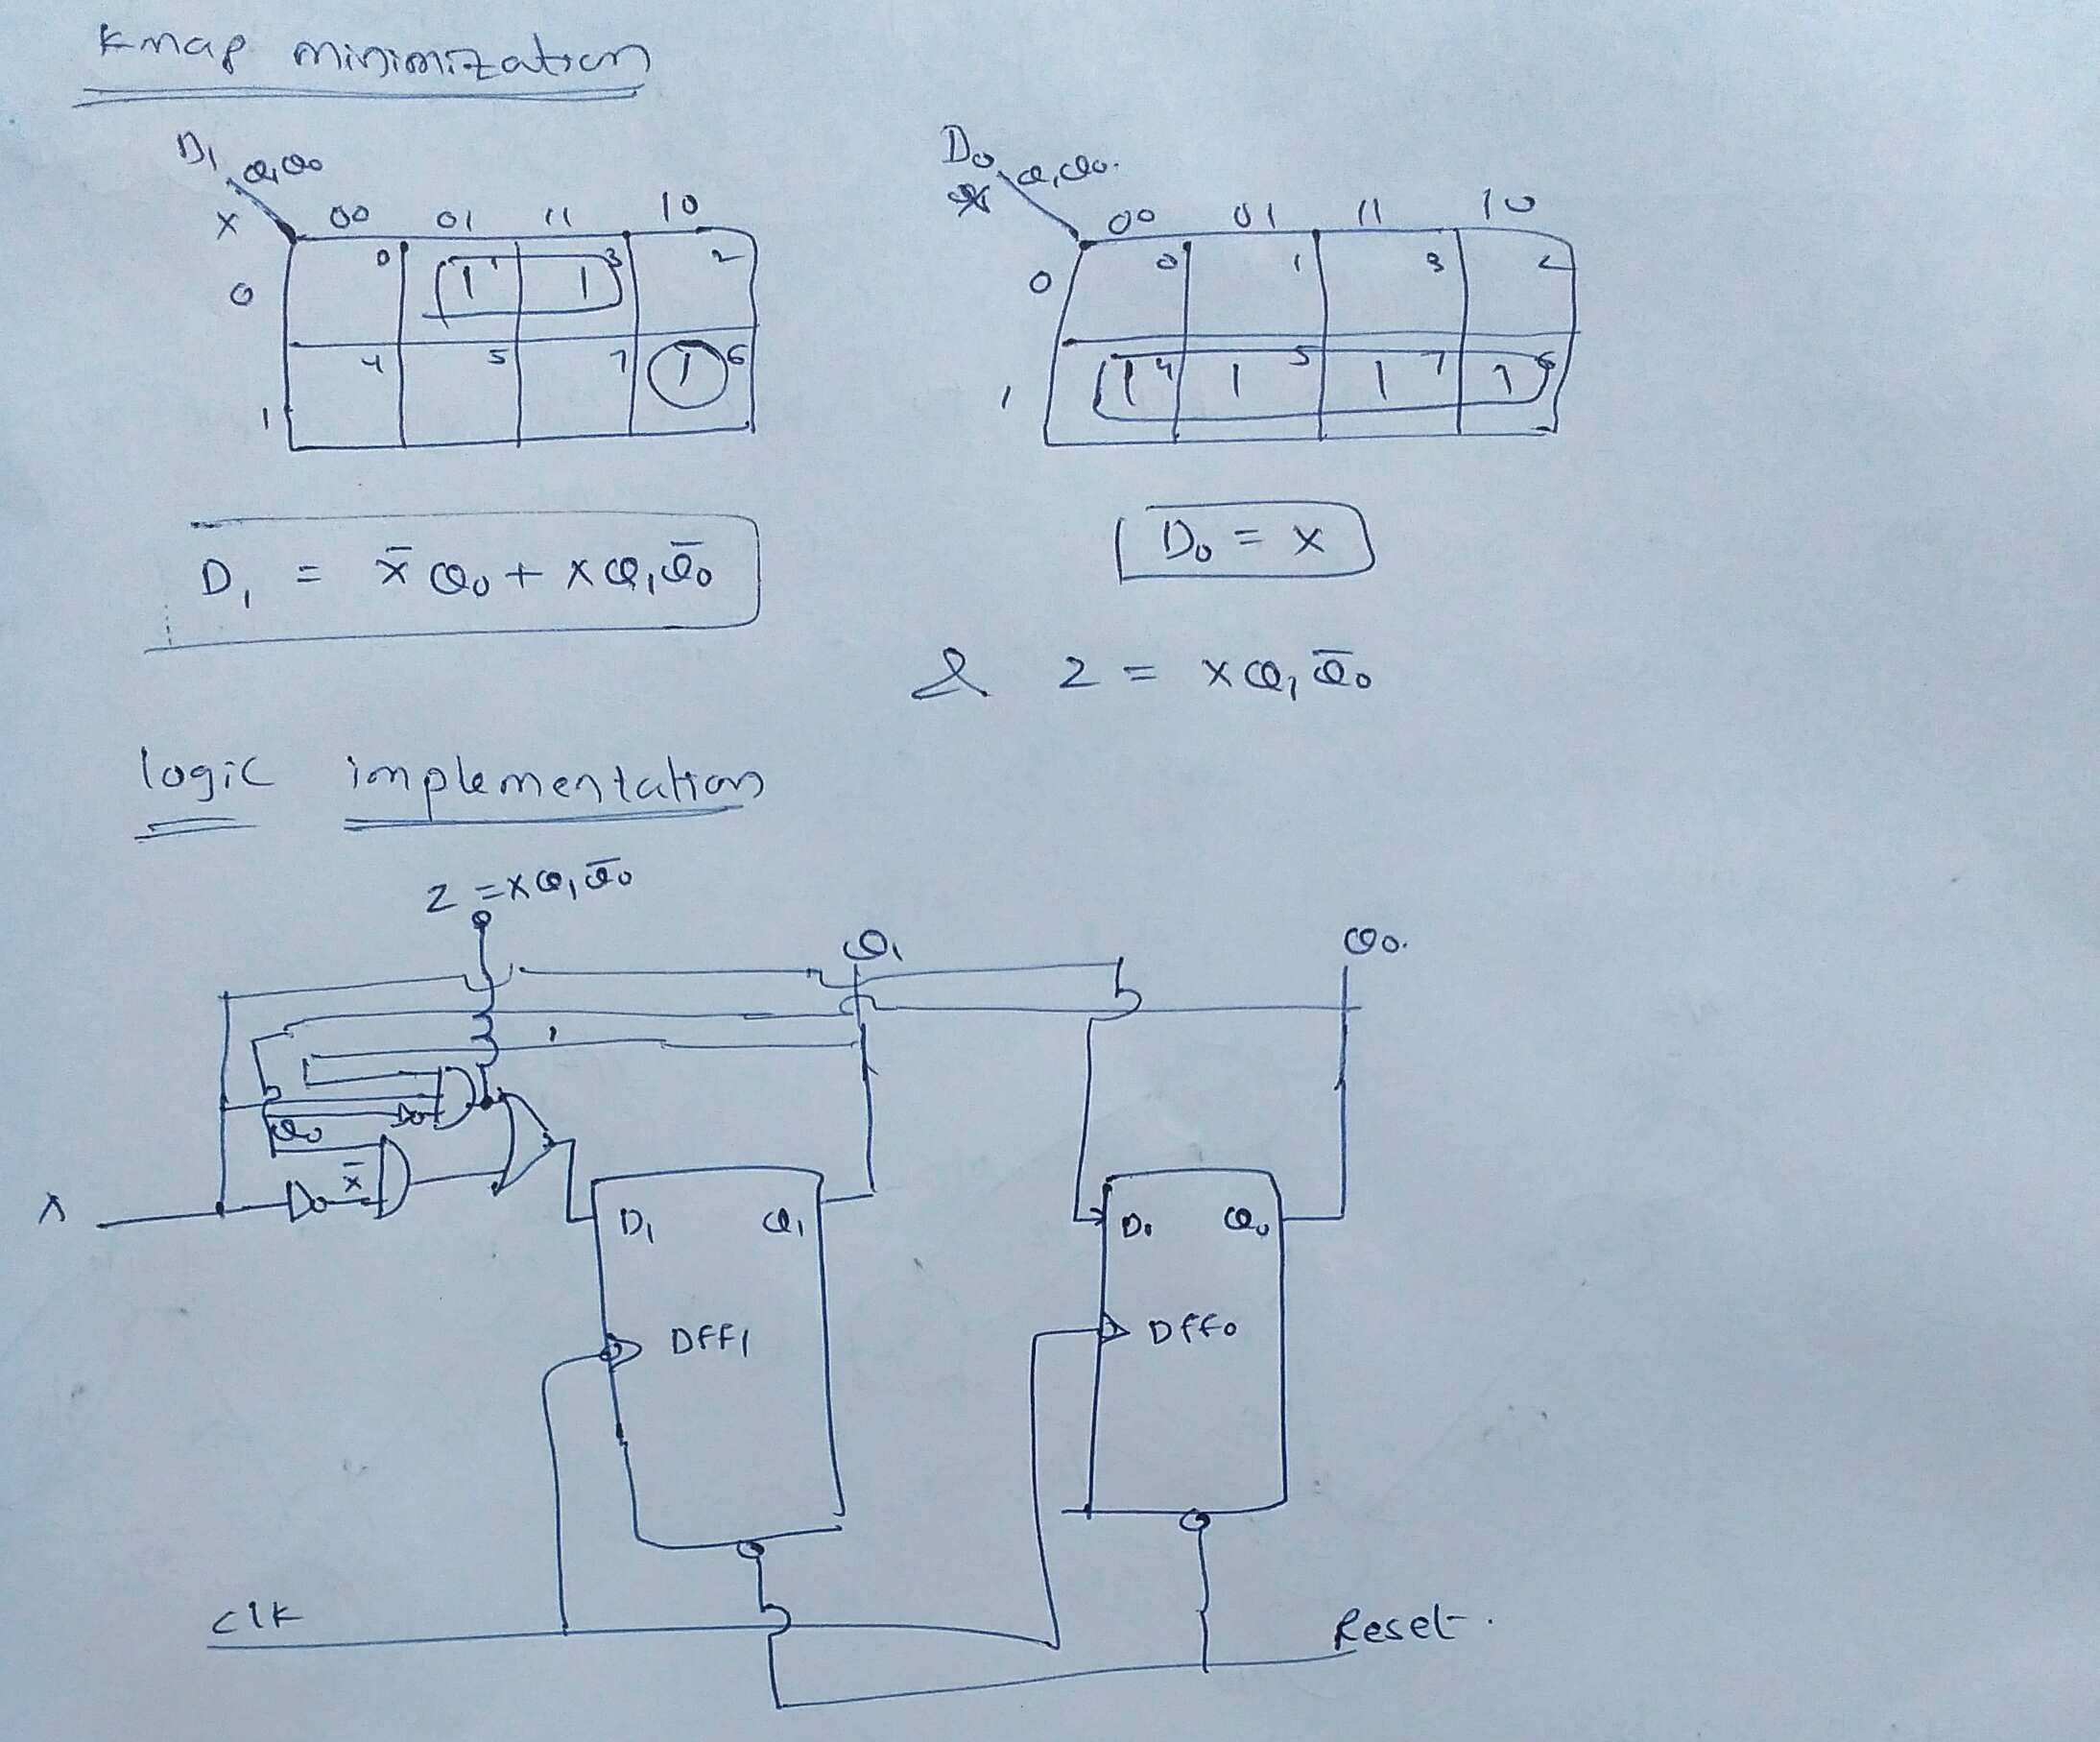 Kmap minimization
D1 Q1Q0
X 00 01 11 10
0 0 1 1 1 3 2
1 4 5 7 1 6
D0 Q1Q0.
00 01 11 10
0 0 1 3 2
1 1 4 1 5 1 7 1 6
D1 = x̄ Q0 + x Q1 Q̄0
D0 = x
& z = x Q1 Q̄0
logic implementation
z = x Q1 Q̄0
Q1 Q0.
Q0
x̄
X
D1 Q1
D0 Q0
DFF1
DFF0
clk
Reset.